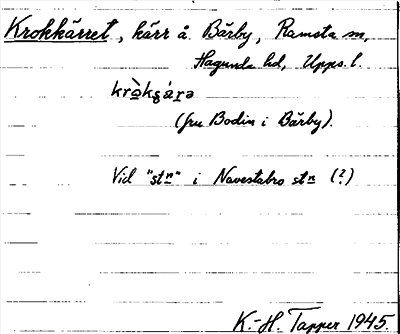 Krokkärret, kärr å Bärby, Ramsta sn,
Hagunda hd, Upps. l.
kròkʂára
(fru Bodin i Bärby).
Vid "stn" i Navestabro stn (?)
K.-H. Tapper 1945.